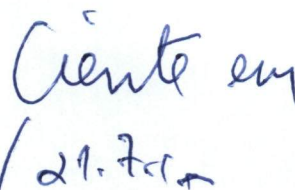 Ciente em
21.7.